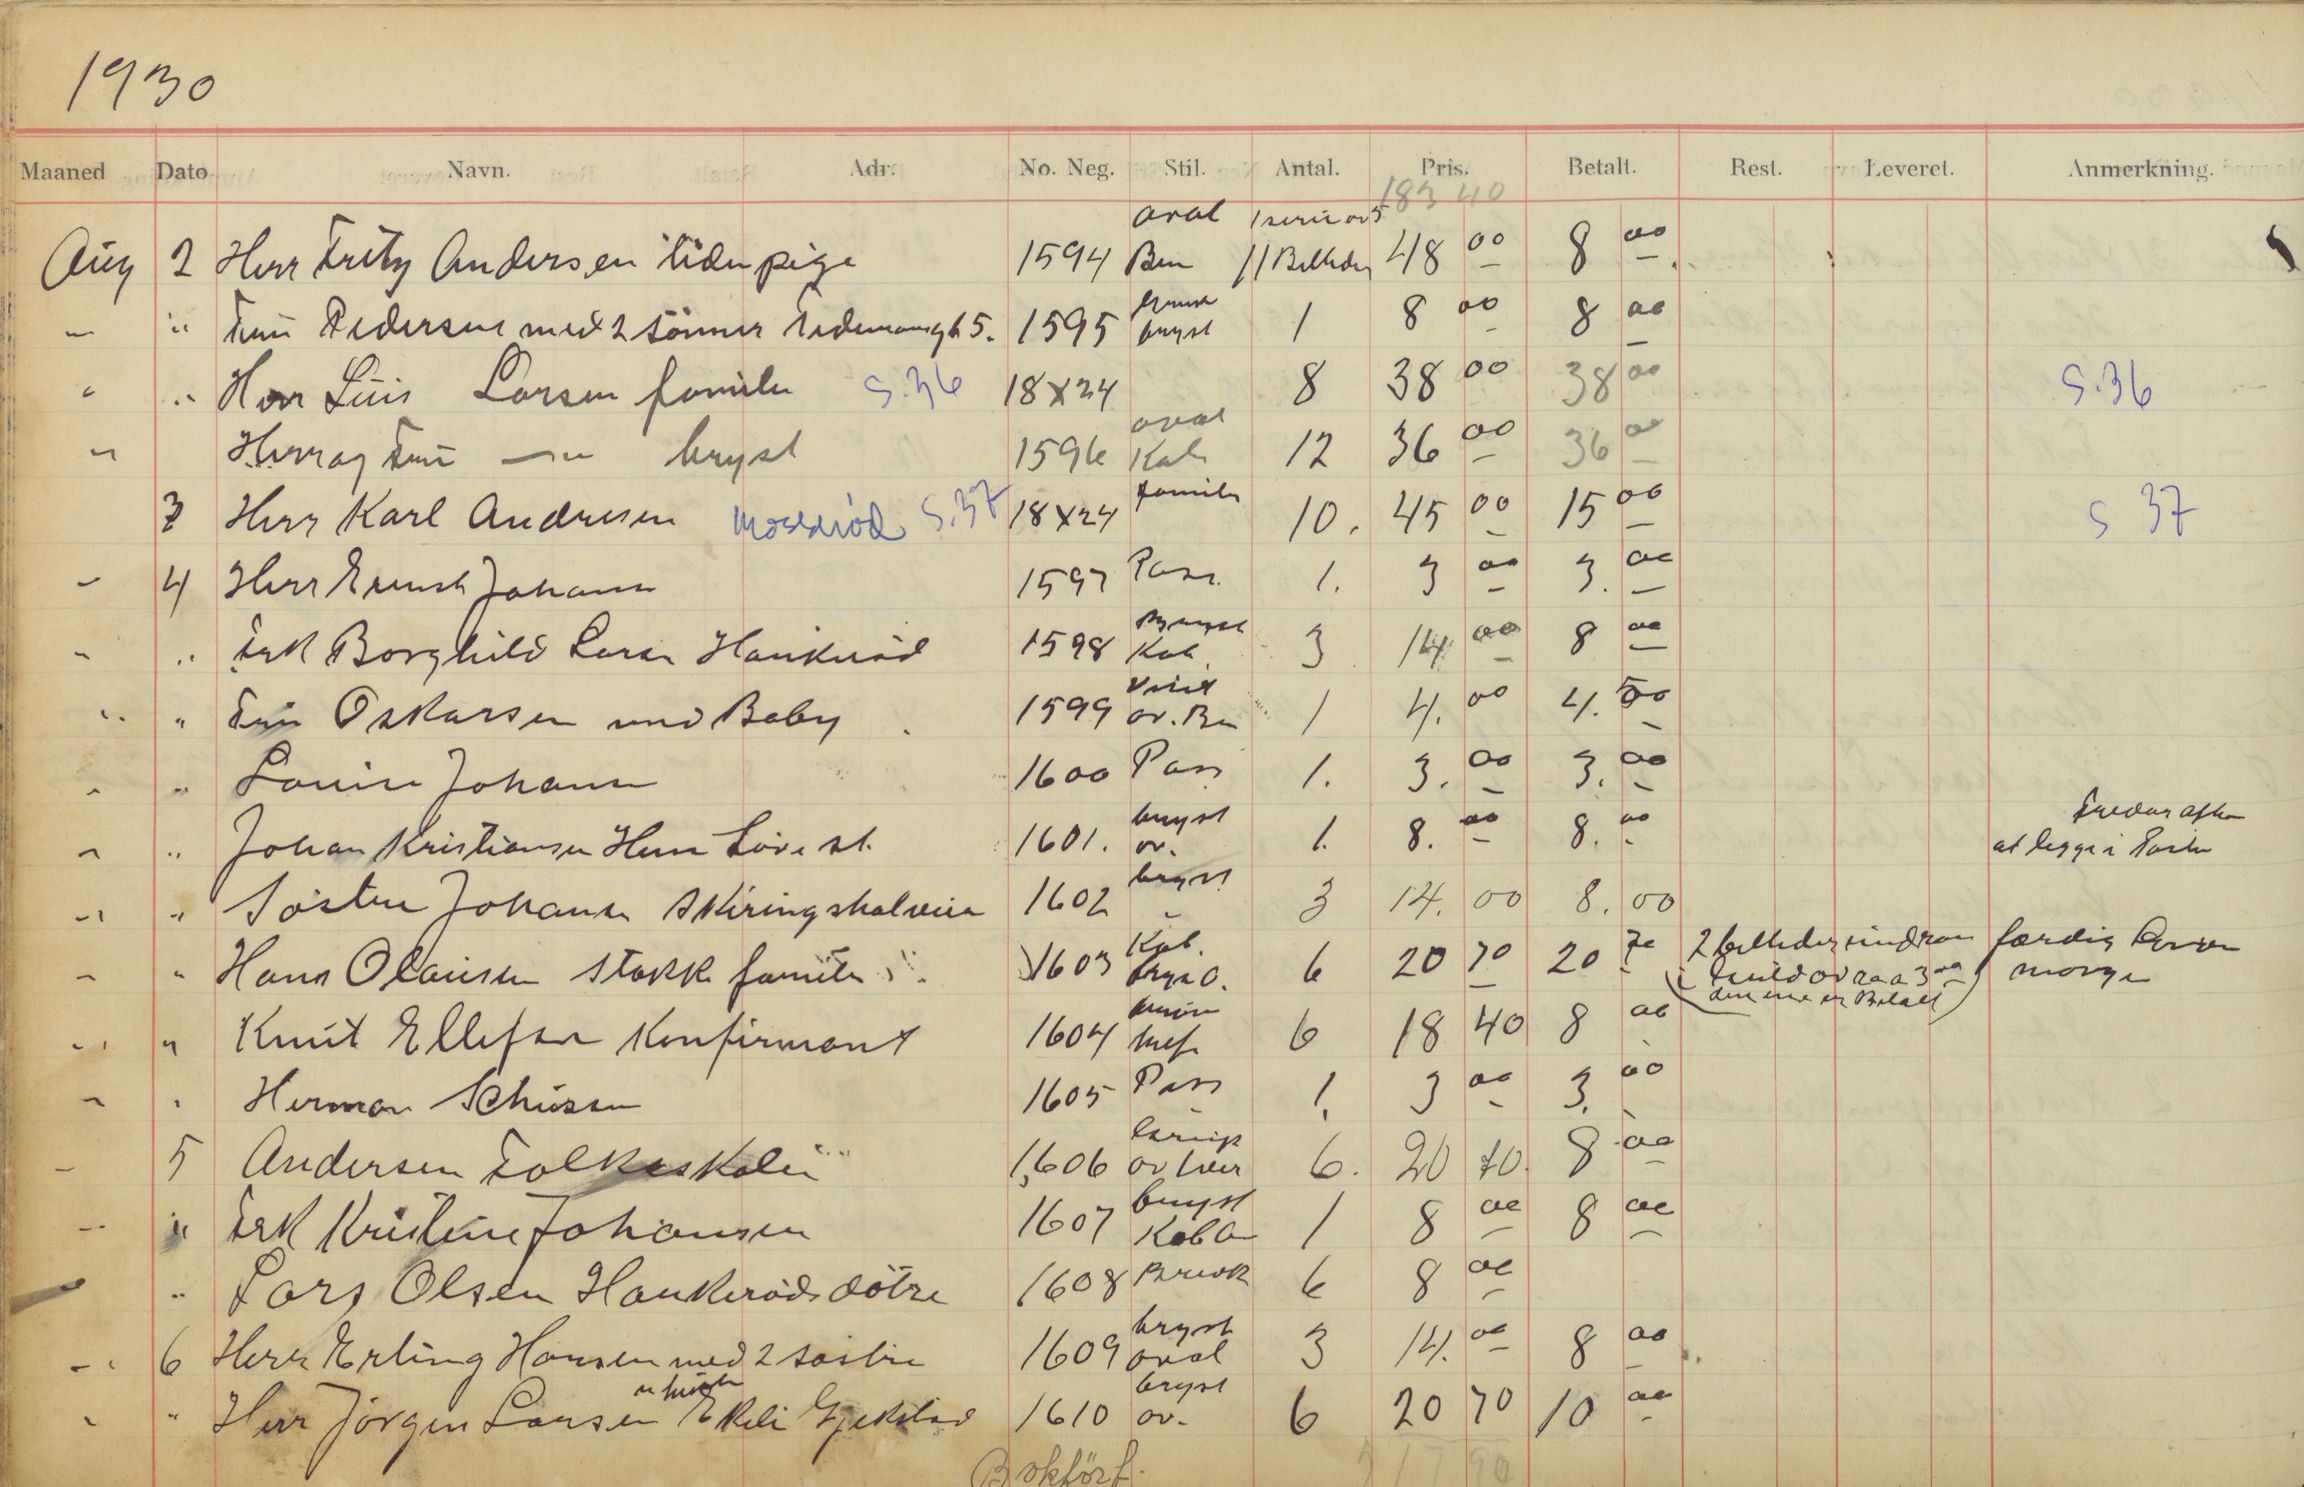 1930
Maaned Dato Navn. Adr. No. Neg. Stil. Antal. Pris. Betalt. Rest. Leveret. Anmerkning.
183 40
Aug 2 Herr Fritz Andersen liden pige 1594 oval Ben 1 serie av 5 11 Billeder 48 00 8 00
" Fru Pedersen med 2 sönner 1595 bryst 1 8 00 8 00
" Herr Luis Larsen familie S.36 18x24 8 38 00 38 00 S.36
" Herr og Fru — " — bryst 1596 oval Kab 12 36 00 36 00
3 Herr Karl Andresen Moseröd S.37 18x24 familie 10. 45 00 15 00 S 37
" 4 Herr Ernst Johansen 1597 Pass. 1. 3 00 3. 00
" " Frk Borghild Larsen Haukeröd 1598 bryst Kab. 3 14 00 8 00
" " Fru Oskarsen med Baby 1599 Visit ov. Ben 1 4. 00 4. 50
" " Louise Johansen 1600 Pass 1. 3. 00 3. 00
" " Johan Kristiansen 1601. bryst ov. 1. 8. 00 8. 00
at legge i Posten
" " Söstre Johansen Skiringsalveien 1602 bryst " 3 14. 00 8. 00
" " Hans Olausen Stokke familie 1603 Kab. 6 20 70 20 70 2 billeder færdig
morgen
" " Knut Ellefsen Konfirmant 1604 6 18 40 8 00
" " Herman 1605 Pass 1. 3 00 3. 00
" 5 Andersen Folkeskolen 1606 6. 20 70. 8 00
" " Frk Kristine Johansen 1607 bryst Kab 1 8 00 8 00
" Lars Olsen Haukeröd dötre 1608 Brevk 6 8 00
" 6 Herr Erling Hansen med 2 söstre 1609 bryst oval 3 14. 00 8 00
" " Herr Jörgen Larsen Ekeli Gjekstad 1610 bryst ov. 6 20 70 10 00
Bokfört.